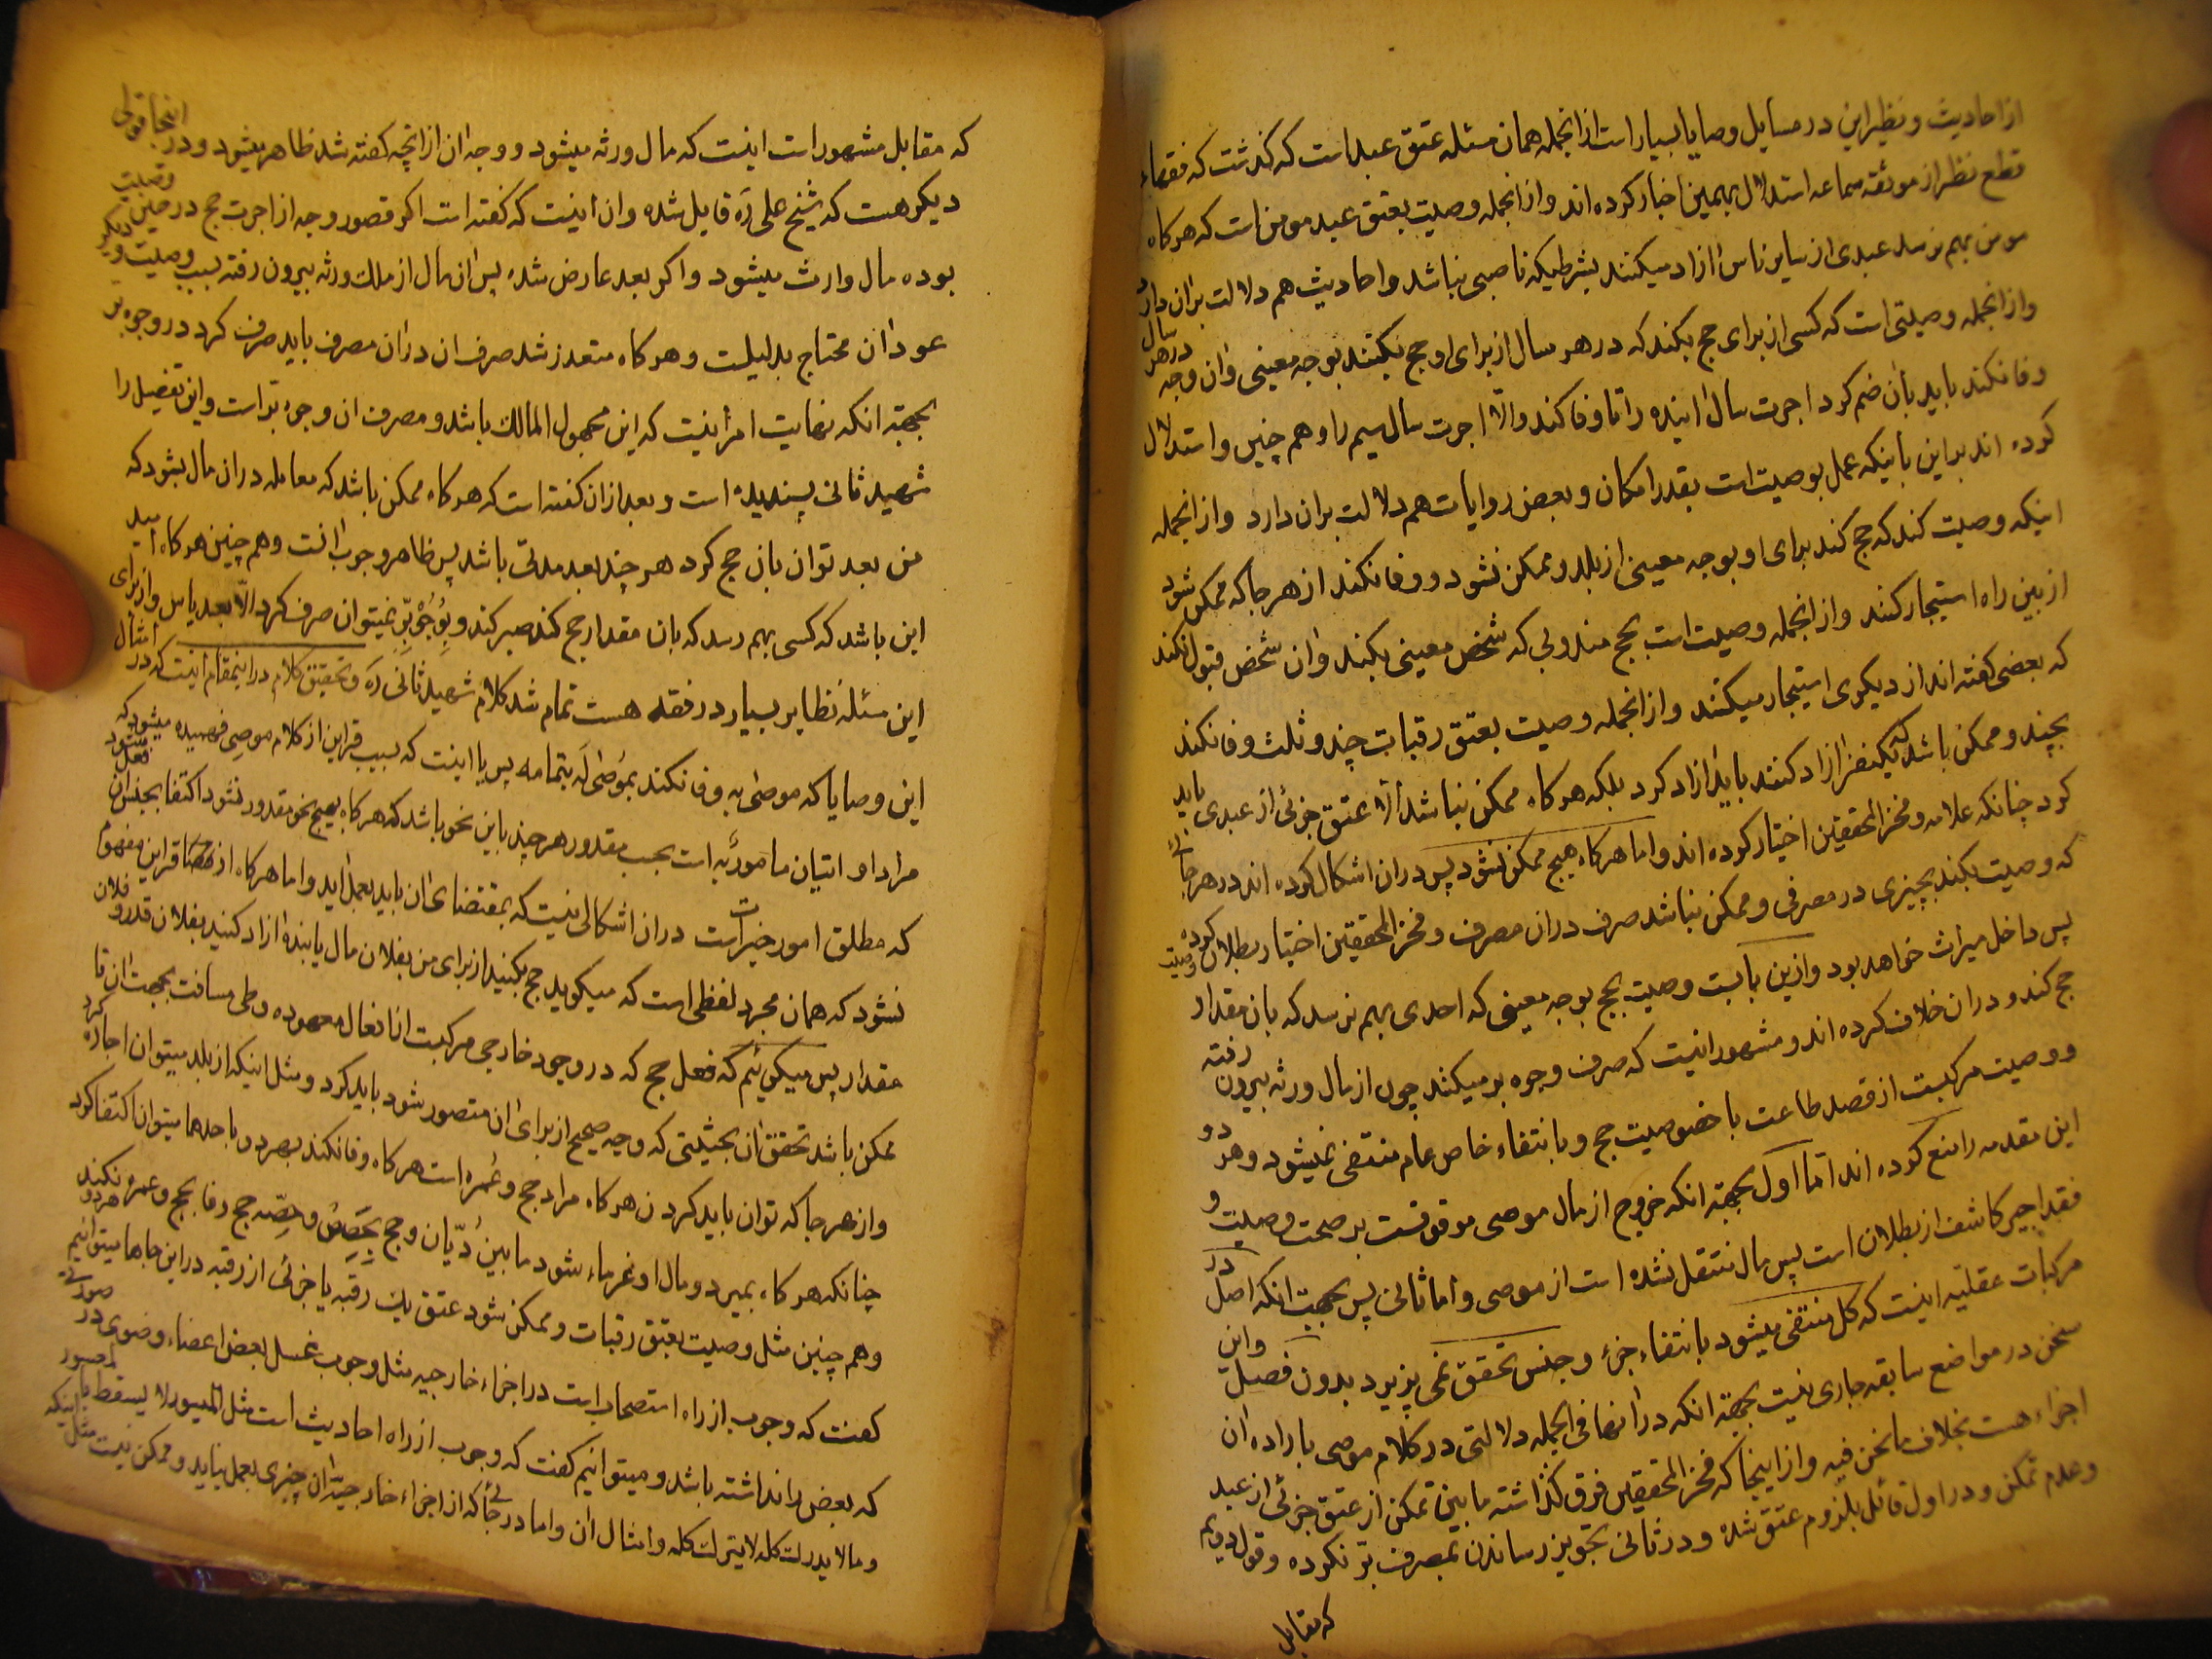 از احادیث و نظیر این در مسایل وصایا بسیار است از انجمله همان مسئله عتق عبد است که کذشت که فقهاء
قطع نظر از موثقه سماعه استدلال بهمین اخبار کرده اند و از انجمله وصیت بعتق عبد مومن است که هر کاه
مومن بهم نرسد عبدی از سایر ناس را ازاد میکنند بشرطیکه ناصبی نباشد و احادیث هم دلالت بران دارد
و از انجمله وصیتی است که کسی از برای حج بکند که در هر سال از برای او حج بکنند بوجه معینی و ان وجه در هر سال
وفا نکند باید بان ضم کرد اجرت سال اینده را تا وفا کند و الّا اجرت سال سیم را و هم چنین و استدلال
کرده اند بر این باینکه عمل بوصیت است بقدر امکان و بعض روایات هم دلالت بران دارد و از انجمله
اینکه وصیت کند که حج کند برای او بوجه معینی از بلد و ممکن نشود و وفا نکند از هر جا که ممکن شود
از بین راه استیجار کنند و از انجمله وصیت است بحج مندوبی که شخص معینی بکند و ان شخص قبول نکند
که بعضی کفته اند از دیکری استیجار میکنند و از انجمله وصیت بعتق رقبات چند و ثلث وفا نکند
بچند و ممکن باشد که یکنفر را ازاد کنند باید ازاد کرد بلکه هر کاه ممکن نباشد الّا عتق جزئی از عبدی باید
کرد چنانکه علامه و فخر المحققین اختیار کرده اند و اما هر کاه هیچ ممکن نشود پس دران اشکال کرده اند در هر جائی
که وصیت بکند بچیزی در مصرفی و ممکن نباشد صرف دران مصرف و فخر المحققین اختیار بطلان کرده وصیت
پس داخل میراث خواهد بود و ازین بابت وصیت بحج بوجه معینی که احدی بهم نرسد که بان مقدار
حج کند و دران خلاف کرده اند و مشهور اینست که صرف وجوه بر میکنند چون از مال ورثه بیرون رفته
و وصیت مرکبست از قصد طاعت با خصوصیت حج و بانتفاء خاص عام منتفی نمیشود و هر دو
این مقدمه را منع کرده اند اما اول بجهة انکه خروج از مال موصی موقوفست بر صحت وصیت و
فقد اجیر کاشف از بطلان است پس مال منتقل نشده است از موصی و اما ثانی پس بجهت انکه اصل در
مرکبات عقلیه اینست که کل منتفی میشود بانتفاء جزء و جنس تحقق نمی پزیرد بدون فصل و این
سخن در مواضع سابقه جاری نیست بجهة انکه در انها فی الجمله دلالتی در کلام موصی باراده ان
اجزاء هست بخلاف مانحن فیه و از اینجا که فخر المحققین فرق کذاشته مابین تمکن از عتق جزئی از عبد
و عدم تمکن و در اول قائل بلزوم عتق شده و در ثانی تجویز رساندن بمصرف برّ نکرده و قول دویم
که مقابل
که مقابل مشهور است اینست که مال ورثه میشود و وجه ان از انچه کفته شد ظاهر میشود و در اینجا قولی
دیکر هست که شیخ علی ره قایل شده و ان اینست که کفته است اکر قصور وجه از اجرت حج در حین وصیت
بوده مال وارث میشود و اکر بعد عارض شده پس ان مال از ملک ورثه بیرون رفته بسبب وصیت و دیکر
عود ان محتاج بدلیلست و هر کاه متعذر شد صرف ان دران مصرف باید صرف کرد در وجوه بر
بجهة انکه نهایت امر اینست که این مجهول المالک باشد و مصرف ان وجوه بر است و این تفصیل را
شهید ثانی پسندیده است و بعد ازان کفته است که هر کاه ممکن باشد که معامله دران مال بشود که
من بعد توان بان حج کرد هر چند بعد مدتی باشد پس ظاهر وجوب انست و هم چنین هر کاه امید
این باشد که کسی بهم رسد که بان مقدار حج کند صبر کند و بوجوه برّ نمیتوان صرف کرد الّا بعد یاس و از برای
این مسئله نظایر بسیار در فقه هست تمام شد کلام شهید ثانی ره و تحقیق کلام در اینمقام اینست که در امثال
این وصایا که موصی به وفا نکند بموصی له بتمامه پس یا اینست که بسبب قراین از کلام موصی فهمیده میشود که
مراد او اتیان مامور به است بحسب مقدور هر چند باین نحو باشد که هر کاه بهیچ نحو مقدور نشود اکتفا بجنس ان فعل میشود
که مطلق امور خیرات است دران اشکالی نیست که بمقتضای ان باید بعمل اید و اما هر کاه از قراین مفهوم
نشود که همان مجرد لفظی است که میکوید حج بکنید از برای من بفلان مال یا بنده ازاد کنید بفلان قدر و فلان
مقدار پس میکوییم که فعل حج که در وجود خارجی مرکبست از افعال معهوده و طی مسافت بجهت ان تا
ممکن باشد تحقق ان بحیثیتی که وجه صحیح از برای ان متصور شود باید کرد و مثل اینکه از بلد میتوان اجاره کرد
و از هر جا که توان باید کرد ن هر کاه مراد حج و عمره است هر کاه وفا نکند بهر دو باحدهما میتوان اکتفا کرد
چنانکه هر کاه بمیرد و مال او غرماء شود مابین دیّان و حج بحصص و حصّه حج وفا بحج و عمره هر دو نکند
و هم چنین مثل وصیت بعتق رقبات و ممکن شود عتق یک رقبه یا جزئی از رقبه در این جاها میتوانیم
کفت که وجوب از راه استصحاب است در اجزاء خارجیه مثل وجوب غسل بعض اعضاء وضوی در صورتی
که بعض را نداشته باشد و میتوانیم کفت که وجوب از راه احادیث است مثل المیسور لا یسقط بالمعسور
و ما لا یدرک کله لا یترک کله و امثال ان و اما در جائی که از اجزاء خارجیه ان چیزی بعمل نیاید و ممکن نیست مثل اینکه